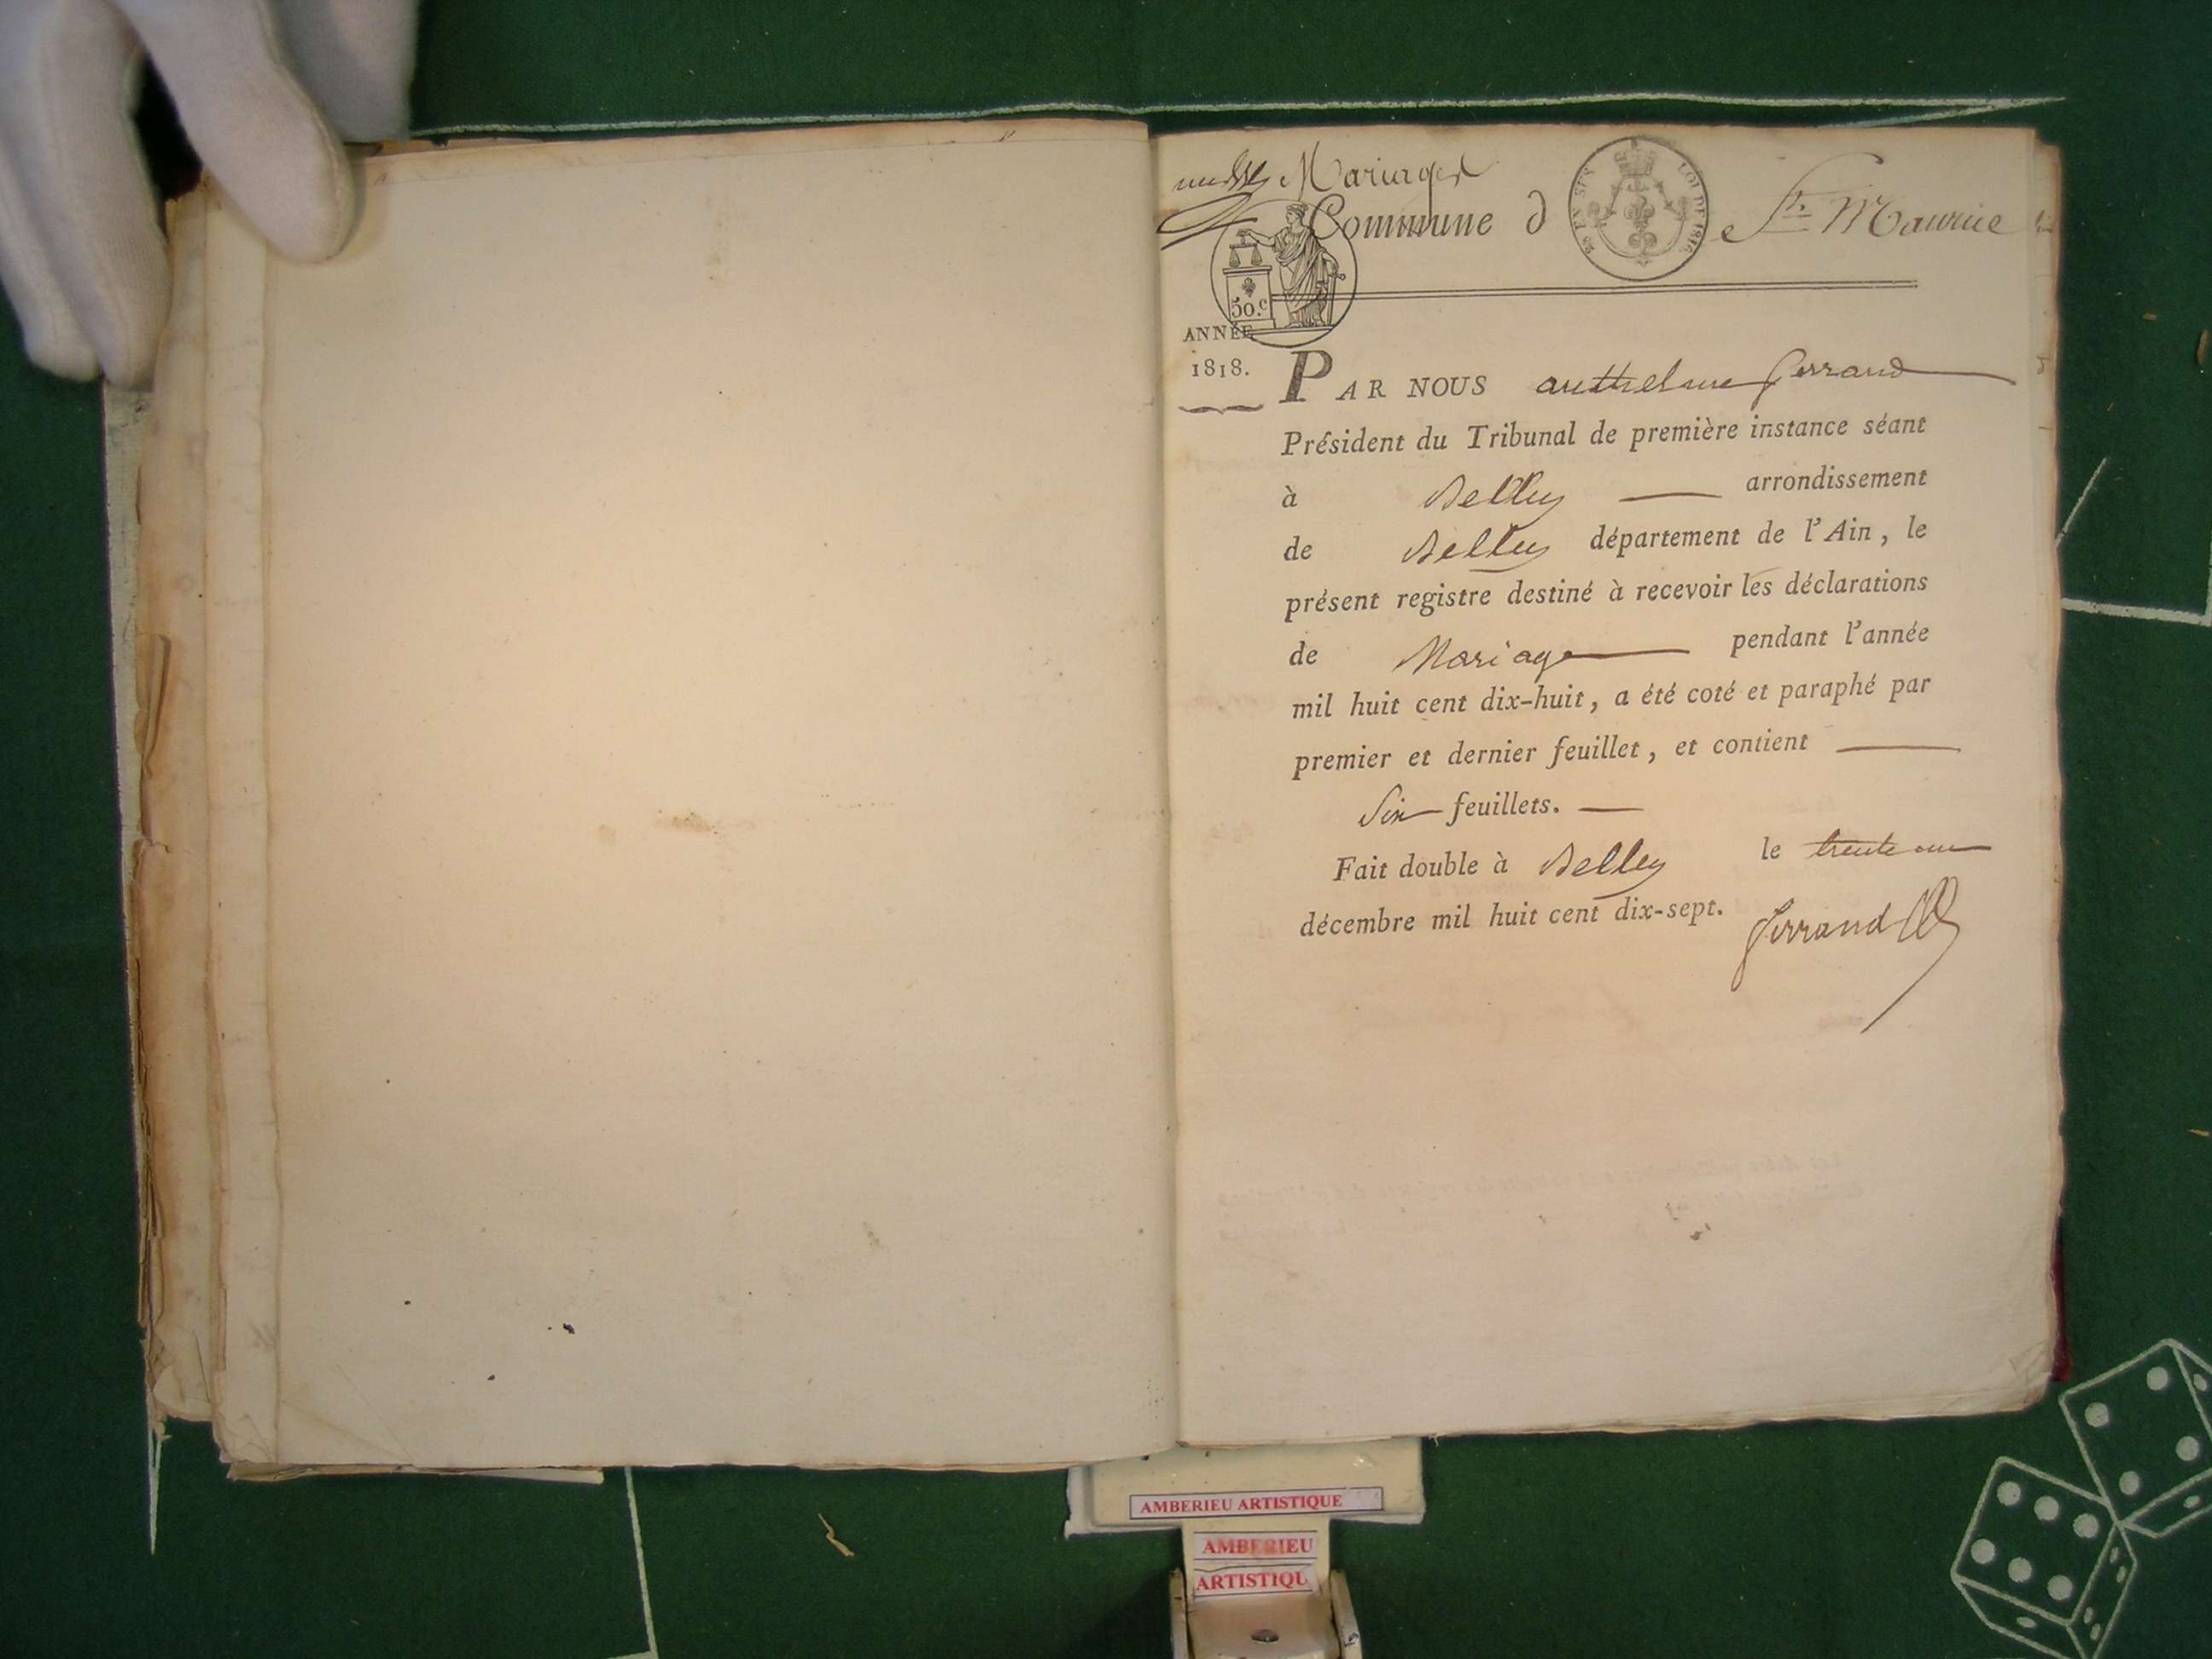 Mariages
Commune de St. Maurice
25 EN SUS
LOI DE 1816
50.c
ANNÉE
1818.
PAR NOUS anthelme ferrand
Président du Tribunal de première instance séant
à Belley arrondissement
de Belley département de l'Ain, le
présent registre destiné à recevoir les déclarations
de Mariage pendant l'année
mil huit cent dix-huit, a été coté et paraphé par
premier et dernier feuillet, et contient
Six feuillets.
Fait double à Belley le trente un
décembre mil huit cent dix-sept.
ferrand
AMBERIEU ARTISTIQUE
AMBERIEU
ARTISTIQU